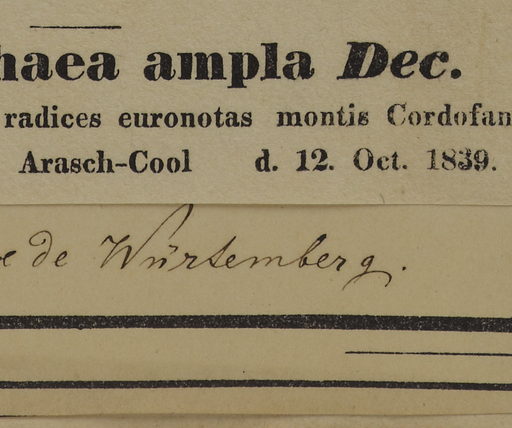 haea ampla Dec.
radices euronotas montis Cordofan
Arasch-Cool d. 12. Oct. 1839.
de Würtemberg.